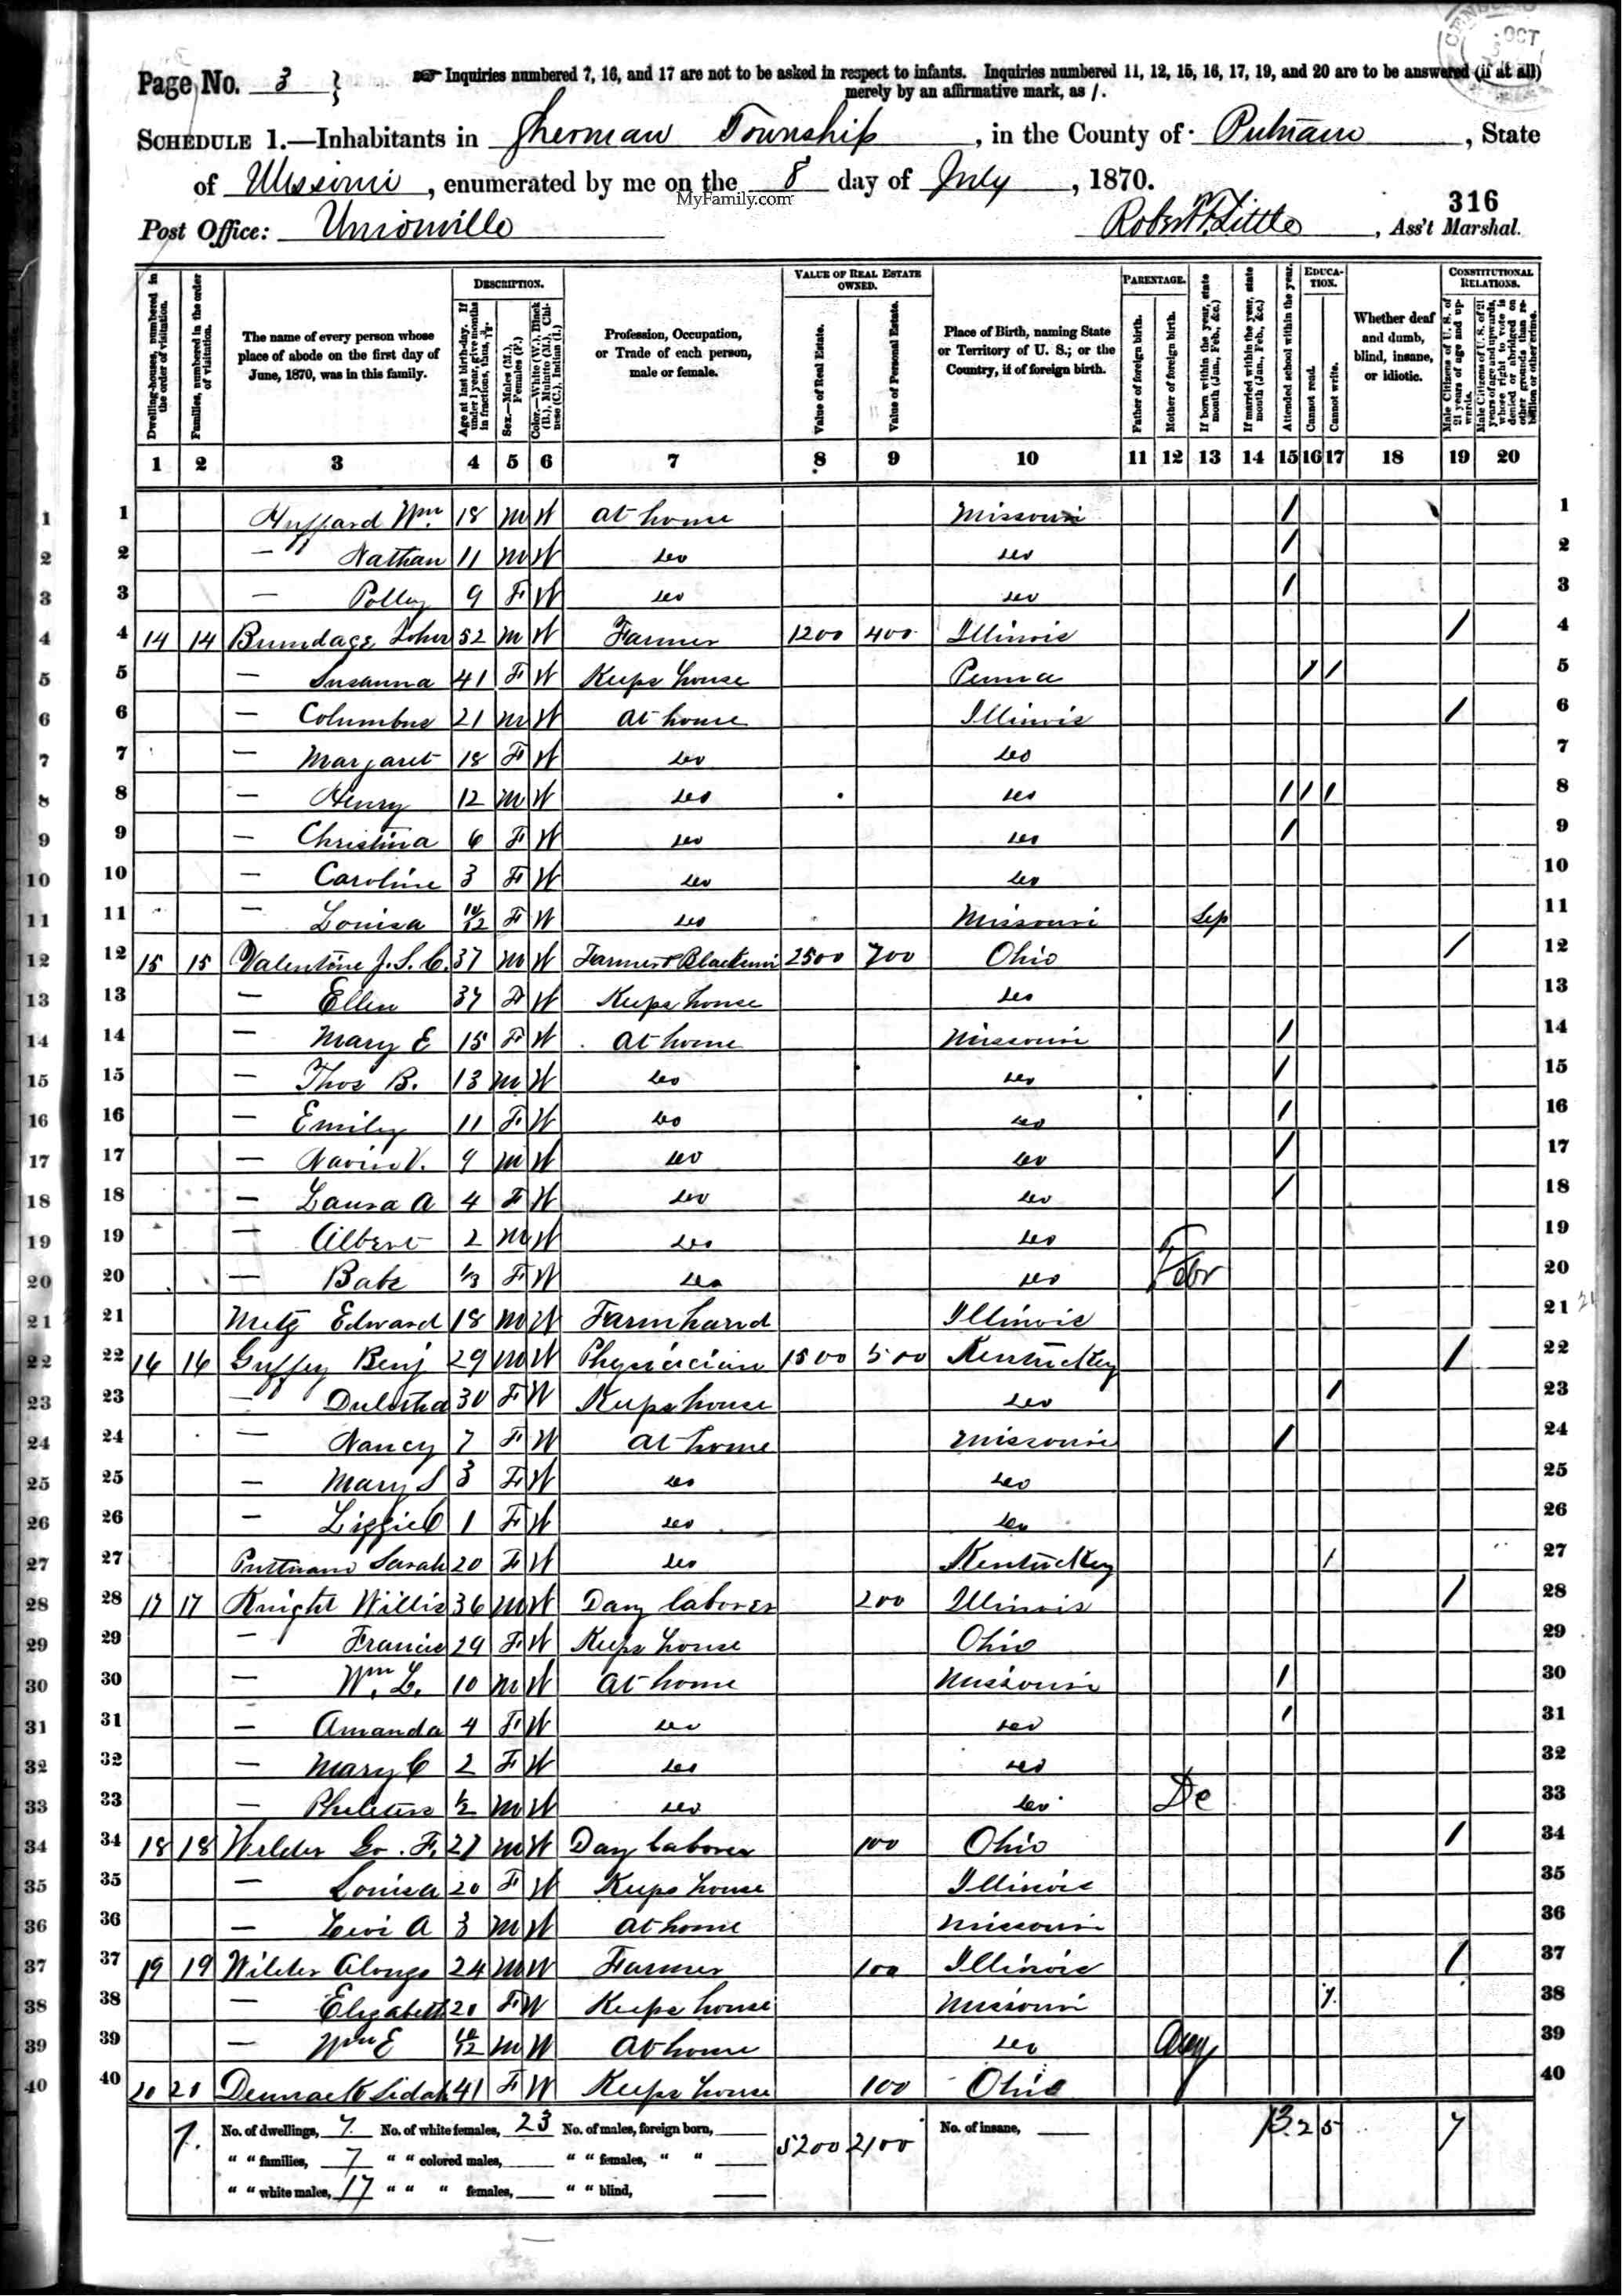 CENSUS OCT
Page No. 3 } Inquiries numbered 7, 16, and 17 are not to be asked in respect to infants. Inquiries numbered 11, 12, 15, 16, 17, 19, and 20 are to be answered (if at all)
merely by an affirmative mark, as /.
SCHEDULE 1.—Inhabitants in Sherman Township, in the County of Putnam, State
of Missouri, enumerated by me on the 8 day of July, 1870.
MyFamily.com
316
Post Office: Unionville Robert Little, Ass't Marshal.
Dwelling-houses, numbered in the order of visitation.
Families, numbered in the order of visitation.
The name of every person whose place of abode on the first day of June, 1870, was in this family.
DESCRIPTION.
Age at last birth-day. If under 1 year, give months in fractions, thus, 3/12.
Sex.—Males (M.), Females (F.)
Color.—White (W.), Black (B.), Mulatto (M.), Chinese (C.), Indian (I.)
Profession, Occupation, or Trade of each person, male or female.
VALUE OF REAL ESTATE OWNED.
Value of Real Estate.
Value of Personal Estate.
Place of Birth, naming State or Territory of U. S.; or the Country, if of foreign birth.
PARENTAGE.
Father of foreign birth.
Mother of foreign birth.
If born within the year, state month (Jan., Feb., &c.)
If married within the year, state month (Jan., Feb., &c.)
Attended school within the year.
EDUCATION.
Cannot read.
Cannot write.
Whether deaf and dumb, blind, insane, or idiotic.
CONSTITUTIONAL RELATIONS.
Male Citizens of U. S. of 21 years of age and upwards.
Male Citizens of U. S. of 21 years of age and upwards, whose right to vote is denied or abridged on other grounds than rebellion or other crime.
1 2 3 4 5 6 7 8 9 10 11 12 13 14 15 16 17 18 19 20
1 1 Huffard Wm 18 M W At home Missouri / 1
2 2 — Nathan 11 M W do do / 2
3 3 — Polley 9 F W do do / 3
4 4 14 14 Bumdage John 52 M W Farmer 1200 400 Illinois / 4
5 5 — Susanna 41 F W Keeps house Penna / / 5
6 6 — Columbus 21 M W At home Illinois / 6
7 7 — Margaret 18 F W do do 7
8 8 — Henry 12 M W do do / / / 8
9 9 — Christina 6 F W do do / 9
10 10 — Caroline 3 F W do do 10
11 11 — Louisa 10/12 F W do Missouri Sep 11
12 12 15 15 Valentine J. S. C. 37 M W Farmer & Blacksmi 2500 700 Ohio / 12
13 13 — Ellen 37 F W Keeps house do 13
14 14 — Mary E 15 F W At home Missouri / 14
15 15 — Thos B. 13 M W do do / 15
16 16 — Emily 11 F W do do / 16
17 17 — V. 9 M W do do / 17
18 18 — Laura A 4 F W do do / 18
19 19 — Albert 2 M W do do 19
20 20 — Babe 1/3 F W do do Febr 20
21 21 Metz Edward 18 M W Farm hand Illinois 21
22 22 16 16 Guffey Benj 29 M W Physician 1500 500 Kentuckey / 22
23 23 — 30 F W Keeps house do / 23
24 24 — Nancy 7 F W At home Missouri / 24
25 25 — Mary S 3 F W do do 25
26 26 — Lizzie C 1 F W do do 26
27 27 Putnam Sarah 20 F W do Kentuckey / 27
28 28 17 17 Knight Willis 36 M W Day laborer 200 Illinois / 28
29 29 — Francis 29 F W Keeps house Ohio 29
30 30 — Wm. L. 10 M W At home Missouri / 30
31 31 — Amanda 4 F W do do / 31
32 32 — Mary C 2 F W do do 32
33 33 — M W do do De 33
34 34 18 18 Wilder Geo. F. 27 M W Day laborer 100 Ohio / 34
35 35 — Louisa 20 F W Keeps house Illinois 35
36 36 — Levi A 3 M W At home Missouri 36
37 37 19 19 Wilder Alonzo 24 M W Farmer 100 Illinois / 37
38 38 — Elizabeth 20 F W Keeps house Missouri / 38
39 39 — Wm E M W At home do Aug 39
40 40 20 20 41 F W Keeps house 100 Ohio 40
7. No. of dwellings, 7. No. of white females, 23 No. of males, foreign born, 5200 2100 No. of insane, 13 2 5 7
" " families, 7 " " colored males, " " females, " "
" " white males, 17 " " " females, " " blind,